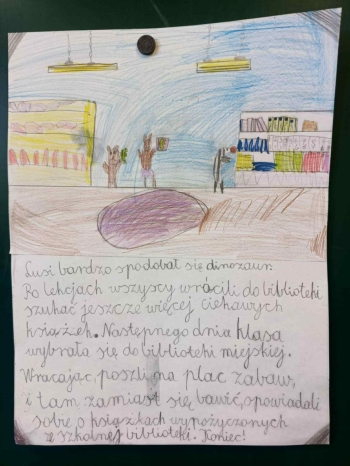 Lusi bardzo spodobał się dinozaur.
Po lekcjach wszyscy wrócili do biblioteki
szukać jeszcze więcej ciekawych
książek. Następnego dnia klasa
wybrała się do biblioteki miejskiej.
Wracając, poszli na plac zabaw,
i tam zamiast się bawić, opowiadali
sobie o książkach wypożyczonych
ze szkolnej biblioteki. Koniec!